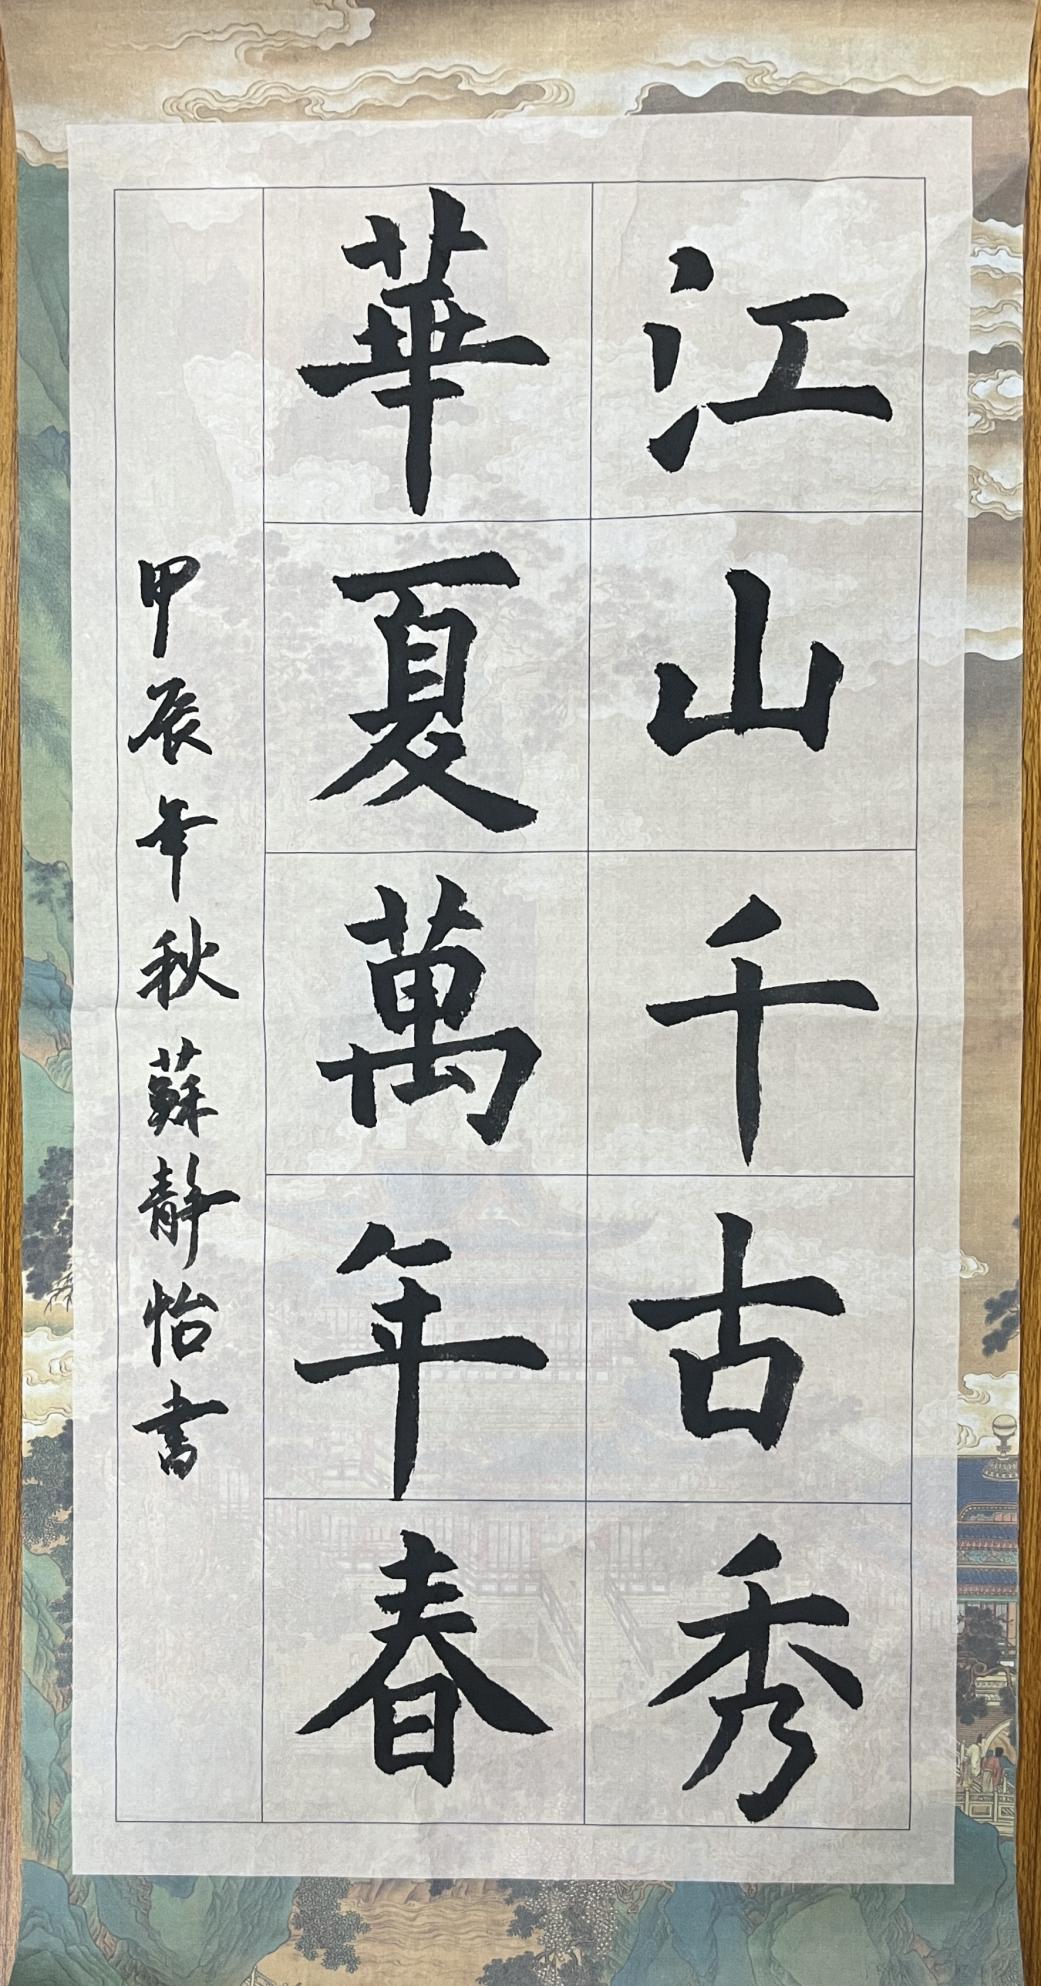 江山千古秀
華夏萬年春
甲辰年秋蘇靜怡书